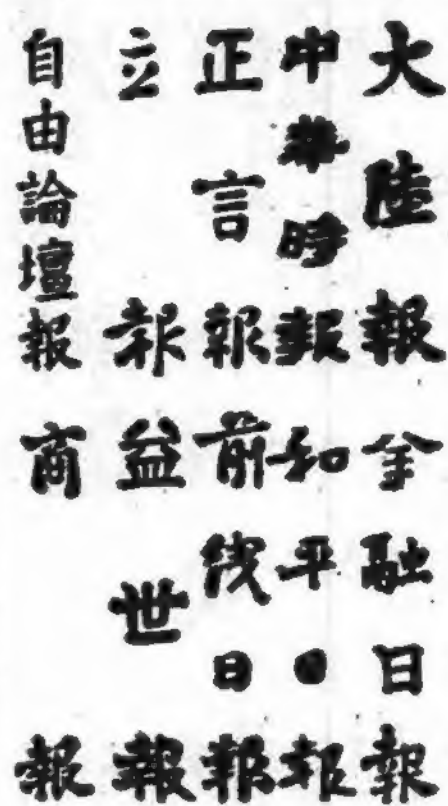 大陸報
中華時報
正言報
立報
自由論壇報
金融日報
和平日報
前線日報
益世報
商報